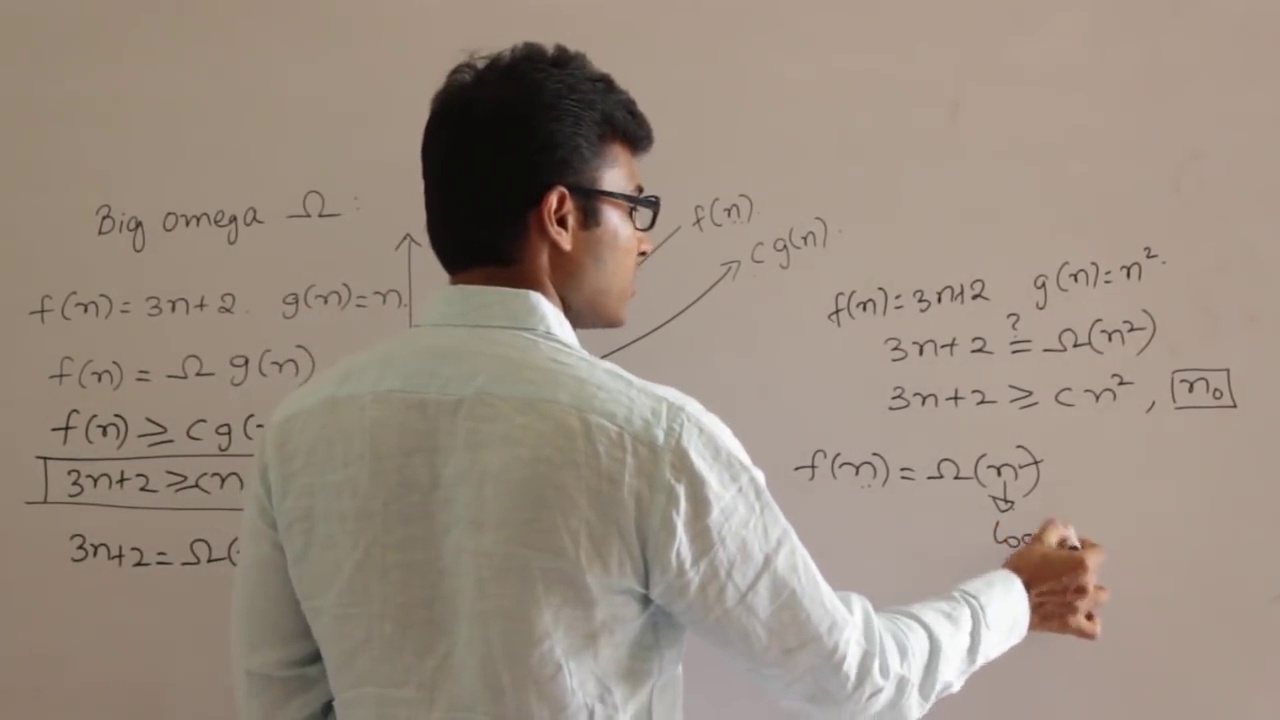 Big omega Ω :
f(n) = 3n+2. g(n) = n.
f(n) = Ω g(n)
f(n) ≥ c g(
3n+2 ≥ cn
3n+2 = Ω(
f(n).
c g(n).
f(n) = 3n+2 g(n) = n².
?
3n+2 = Ω(n²)
3n+2 ≥ cn² , n₀
f(n) = Ω(n)